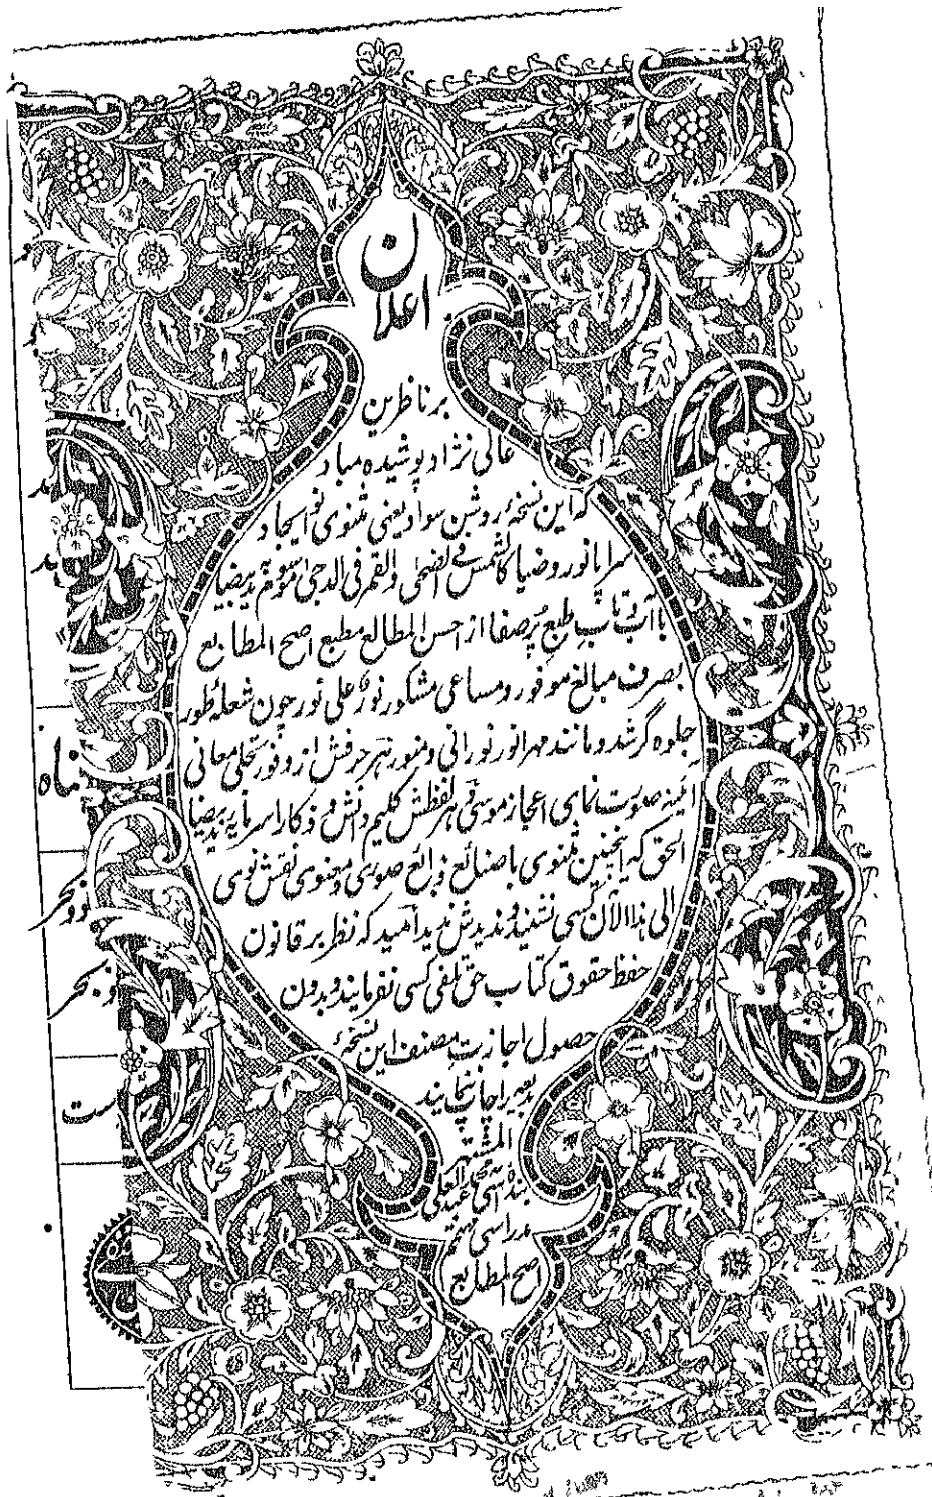 اعلان
بر ناظرین
عالی نژاد پوشیده مباد
که این نسخهٔ روشن سواد یعنی مثنوی نو ایجاد
سراپا نور و ضیا کالشمس فی الضحی والقمر فی الدجی موسوم ید بیضا
با آب و تاب طبع پُر صفا از احسن المطالع مطبع اصح المطابع
بصرف مبالغ موفور و مساعی مشکور نورٌ علی نور چون شعلهٔ طور
جلوه گر شد و مانند مهر انور نورانی و منور هر حرفش از وفور تجلی معانی
آئینه صورت نمای اعجاز موسی و هر لفظش کلیم دانش و ذکا را سرمایه ید بیضا
الحق که اینچنین مثنوی با صنائع و بدائع صوری و معنوی نقش نوی
الی هذا الآن کسی نشنید و ندیدش ندید امید که نظر بر قانون
حفظ حقوق کتاب حق تلفی کسی نفرمایند و بدون
حصول اجازت مصنف این نسخهٔ
بینظیر را چاپ ننمایند
المشتهر
بنده محمد عبد العلی
مدراسی مهتمم
اصح المطابع
ماه
ست